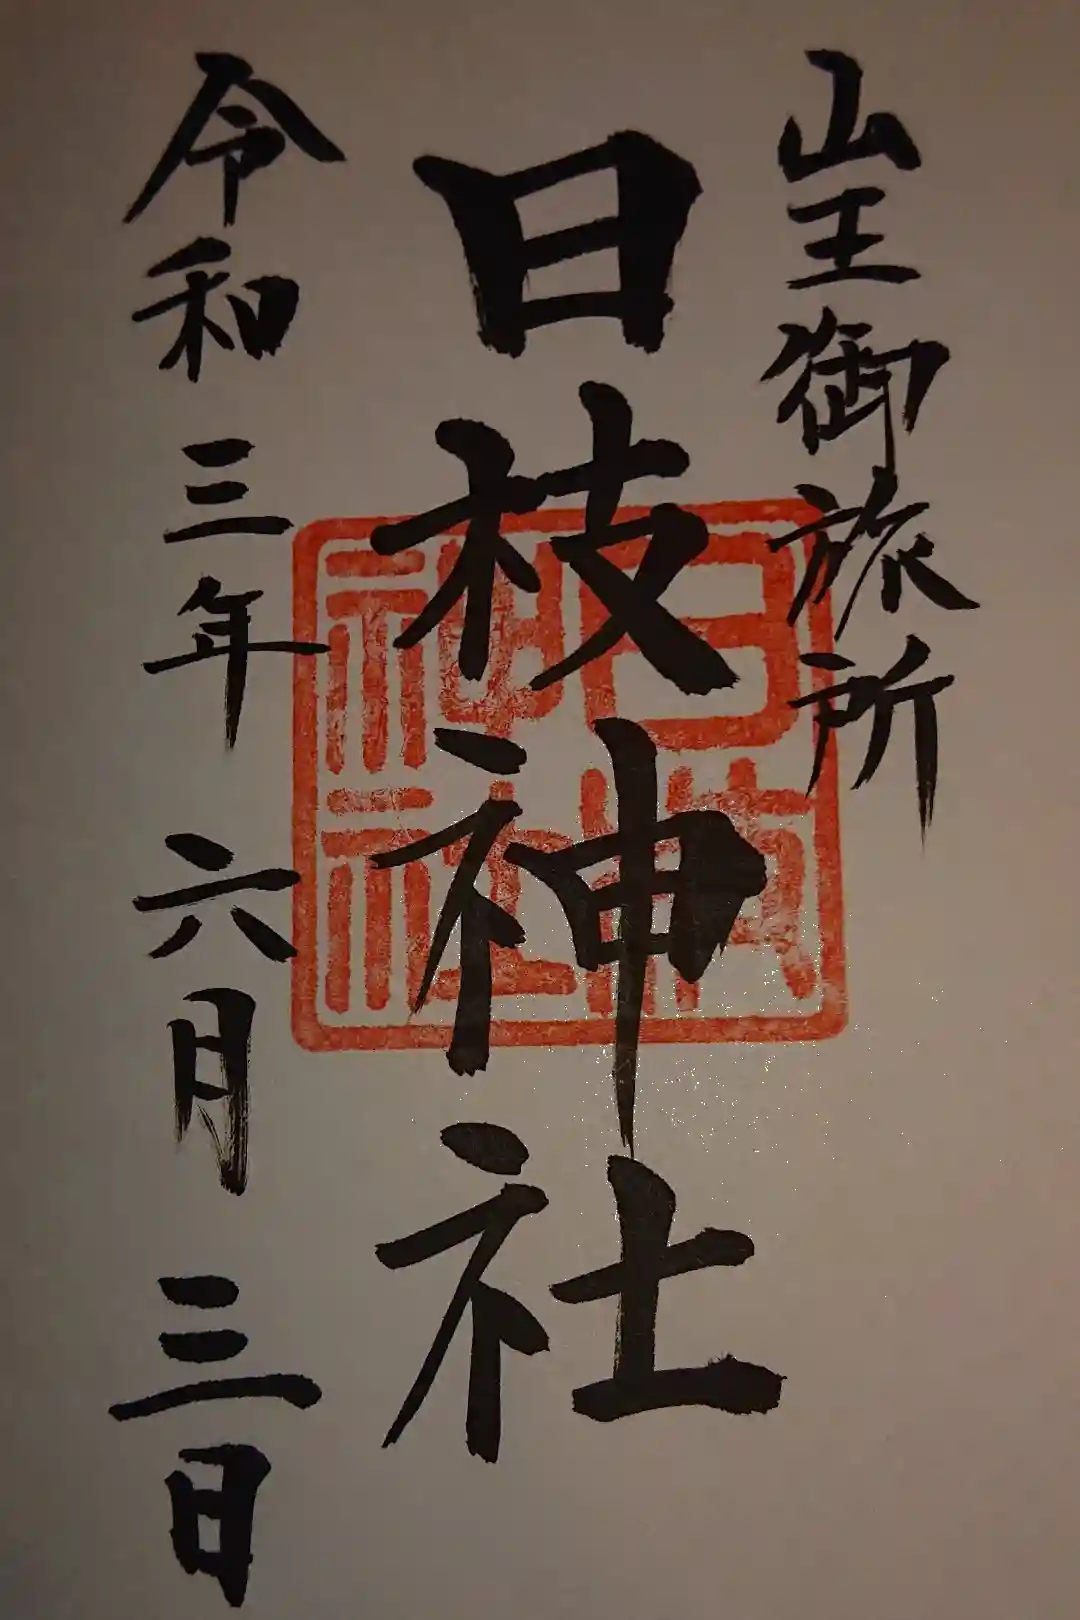 山王御旅所
日枝神社
令和三年六月三日
日枝
神社